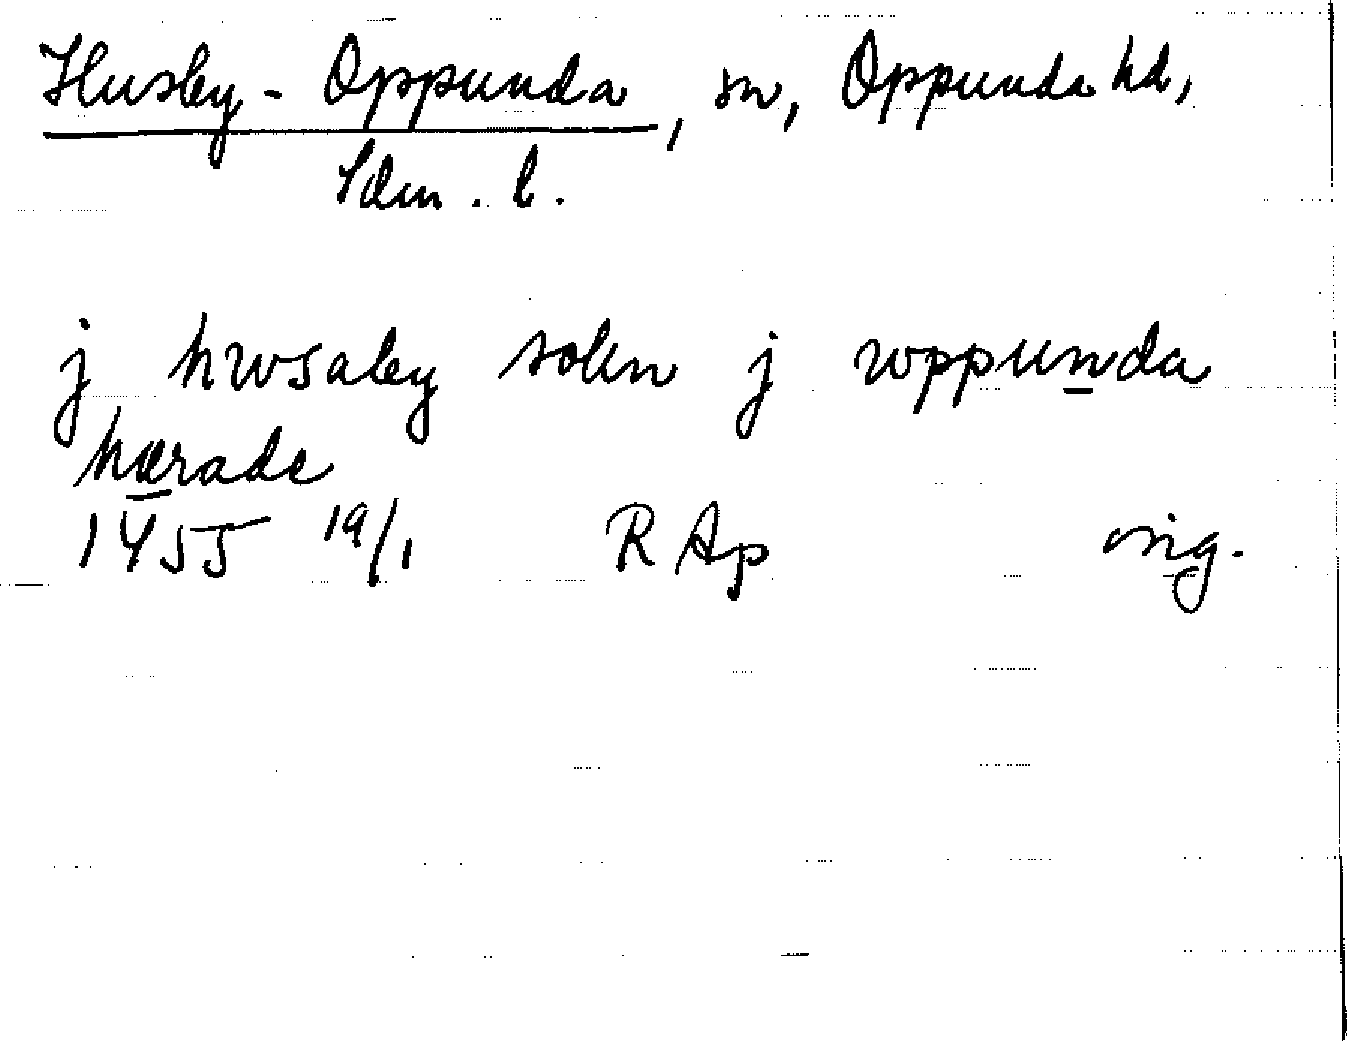 Husby-Oppunda, sn, Oppunda hd,
Sdm. l.
j hwsaby sokn j wppunda
hærade
1455 19/1 RAp orig.